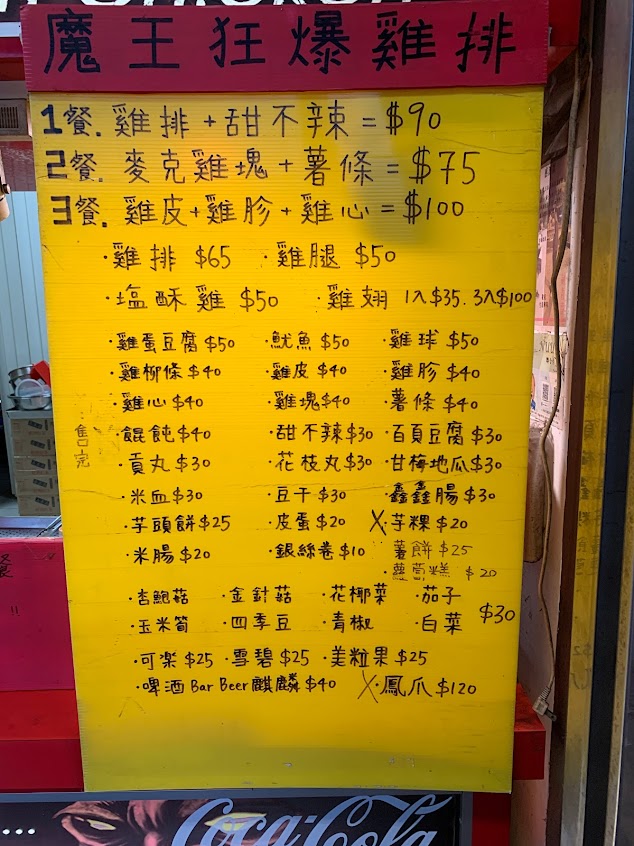 魔王狂爆雞排
1餐. 雞排+甜不辣=$90
2餐. 麥克雞塊+薯條=$75
3餐. 雞皮+雞胗+雞心=$100
·雞排 $65 ·雞腿 $50
·塩酥雞 $50 ·雞翅 1入$35. 3入$100
·雞蛋豆腐$50 ·魷魚 $50 ·雞球 $50
·雞柳條 $40 ·雞皮 $40 ·雞胗 $40
·雞心 $40 ·雞塊$40 ·薯條 $40
·餛飩$40 ·甜不辣$30 ·百頁豆腐$30
售完
·貢丸$30 ·花枝丸$30 ·甘梅地瓜$30
·米血$30 ·豆干$30 ·鑫鑫腸$30
·芋頭餅$25 ·皮蛋$20 X·芋粿 $20
·米腸 $20 ·銀絲卷$10 ·薯餅 $25
·蘿蔔糕 $20
·杏鮑菇 ·金針菇 ·花椰菜 ·茄子
·玉米筍 ·四季豆 ·青椒 ·白菜 $30
·可楽$25 ·雪碧$25 ·美粒果$25
·啤酒 Bar Beer 麒麟 $40 X·鳳爪 $120
Coca-Cola